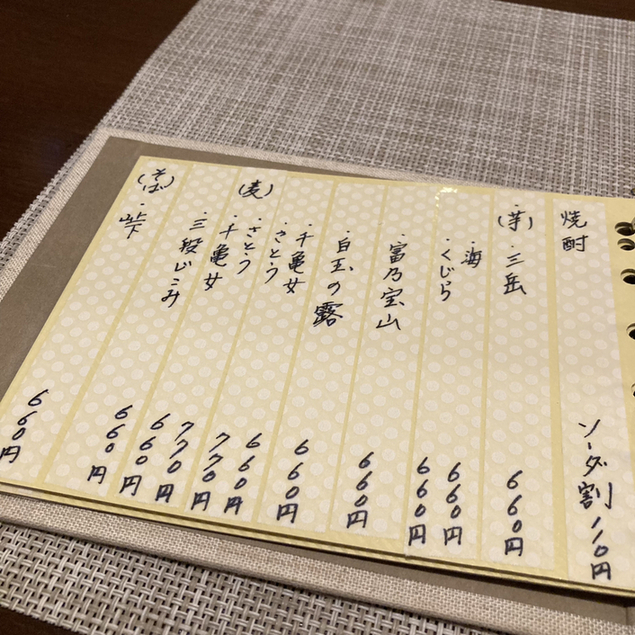 焼酎 ソーダ割 110円
(芋)・三岳 660円
・海 660円
・くじら 660円
・富乃宝山 660円
・白玉の露 660円
・千亀女 660円
・さとう 770円
(麦)・さとう 770円
・千亀女 660円
・三段じこみ 660円
(そば)・峠 660円